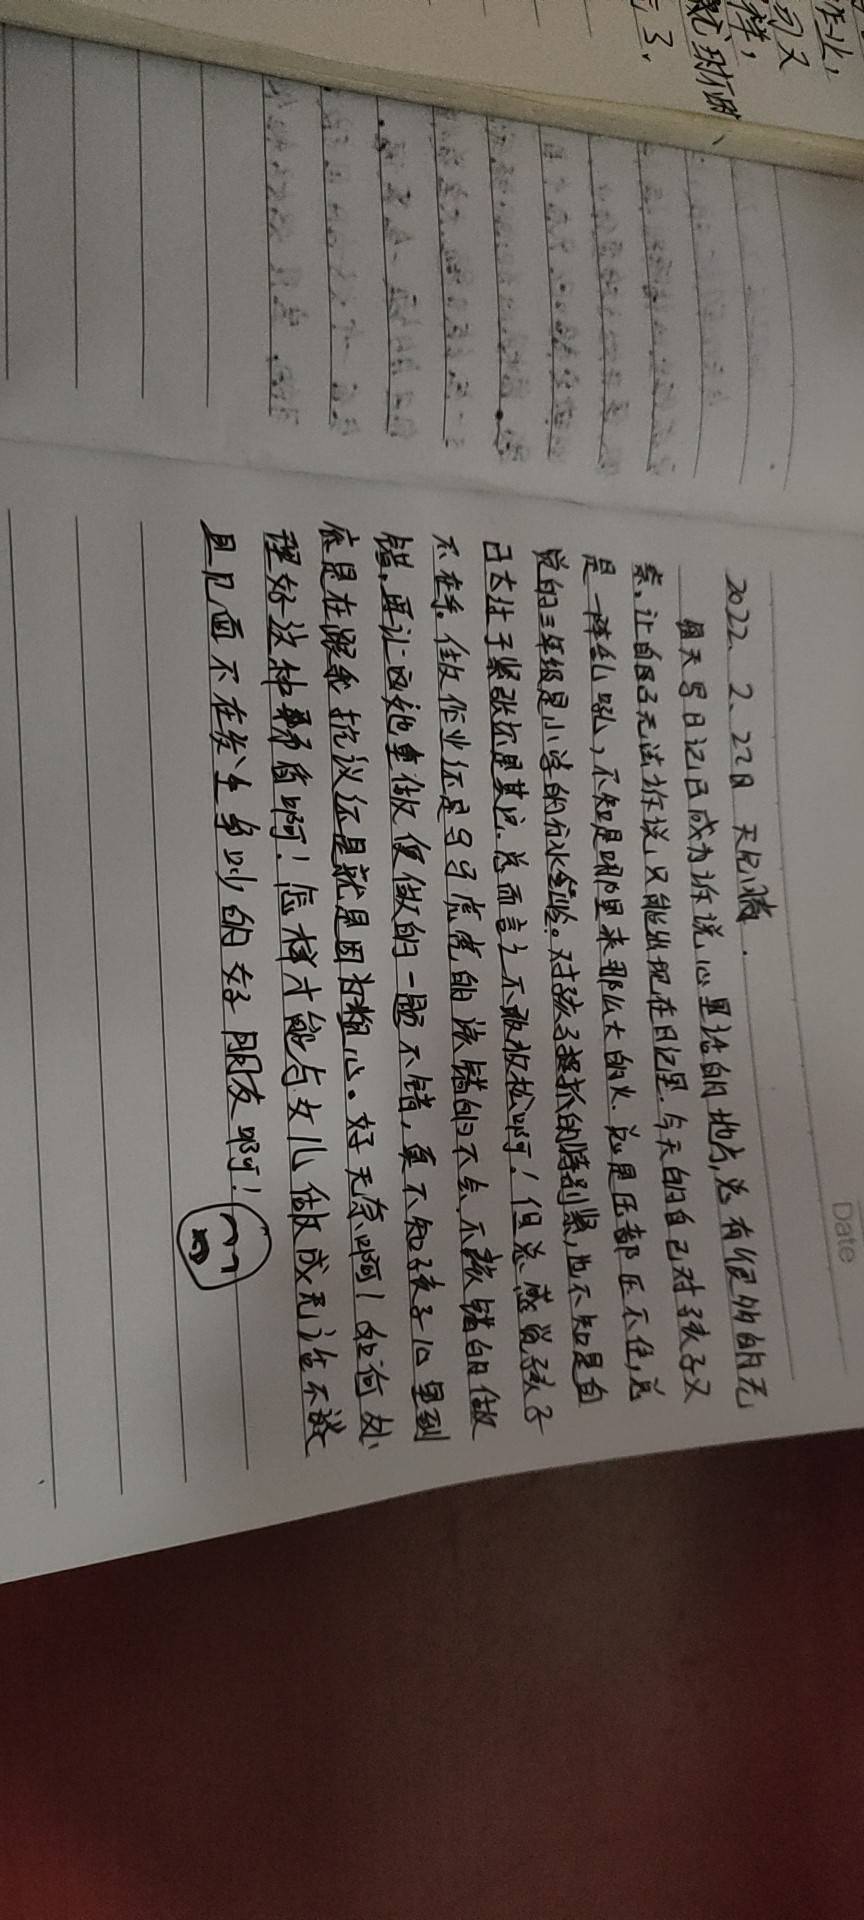 作业，
匀又
样，
就
3、
Date
2022、2、22日 天气：晴.
每天写日记已成为诉说心里话的地点，总有很多的无
奈，让自己无法诉说，只能出现在日记里，今天的自己对孩子又
是一阵乱吼，不知是哪里来那么大的火，总是压都压不住，总
觉的三年级是小学的分水岭。对孩子抓的特别紧，也不知是自
己太过于紧张还是其它，总而言之不敢放松啊！但总感觉孩子
不在乎，做作业还是马马虎虎的该错的不该错的做
错，再让她重做便做的一题不错，真不知孩子心里到
底是在跟我抗议还是就是因为粗心。好无奈啊！如何处
理好这种矛盾啊！怎样才能与女儿做成无话不谈
且见面不在发生争吵的好朋友啊！